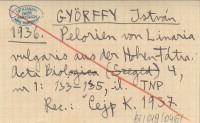 GYÖRFFY István
1936. Pelorien von Linaria
vulgaris aus der Hohen Tátra.
Acta Biologica (Szeged) 4,
n 1: 133-135, il. TNP
Rec.: Cejp K. 1937